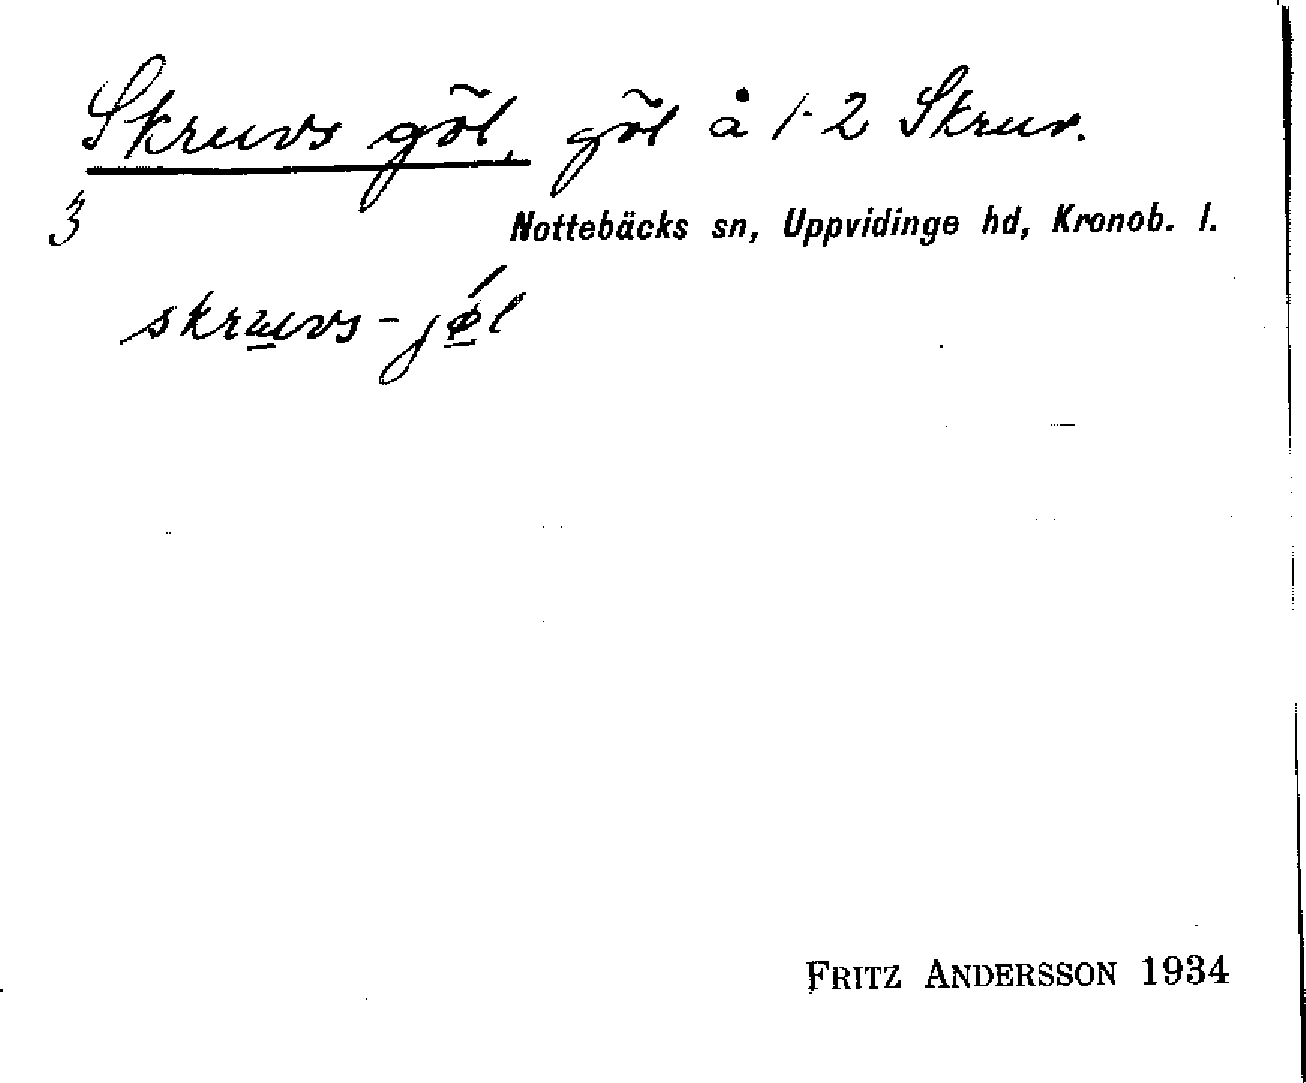 Skruvs göl, göl å 1-2 Skruv.
3
Nottebäcks sn, Uppvidinge hd, Kronob. l.
skruvs-jǿl
FRITZ ANDERSSON 1934